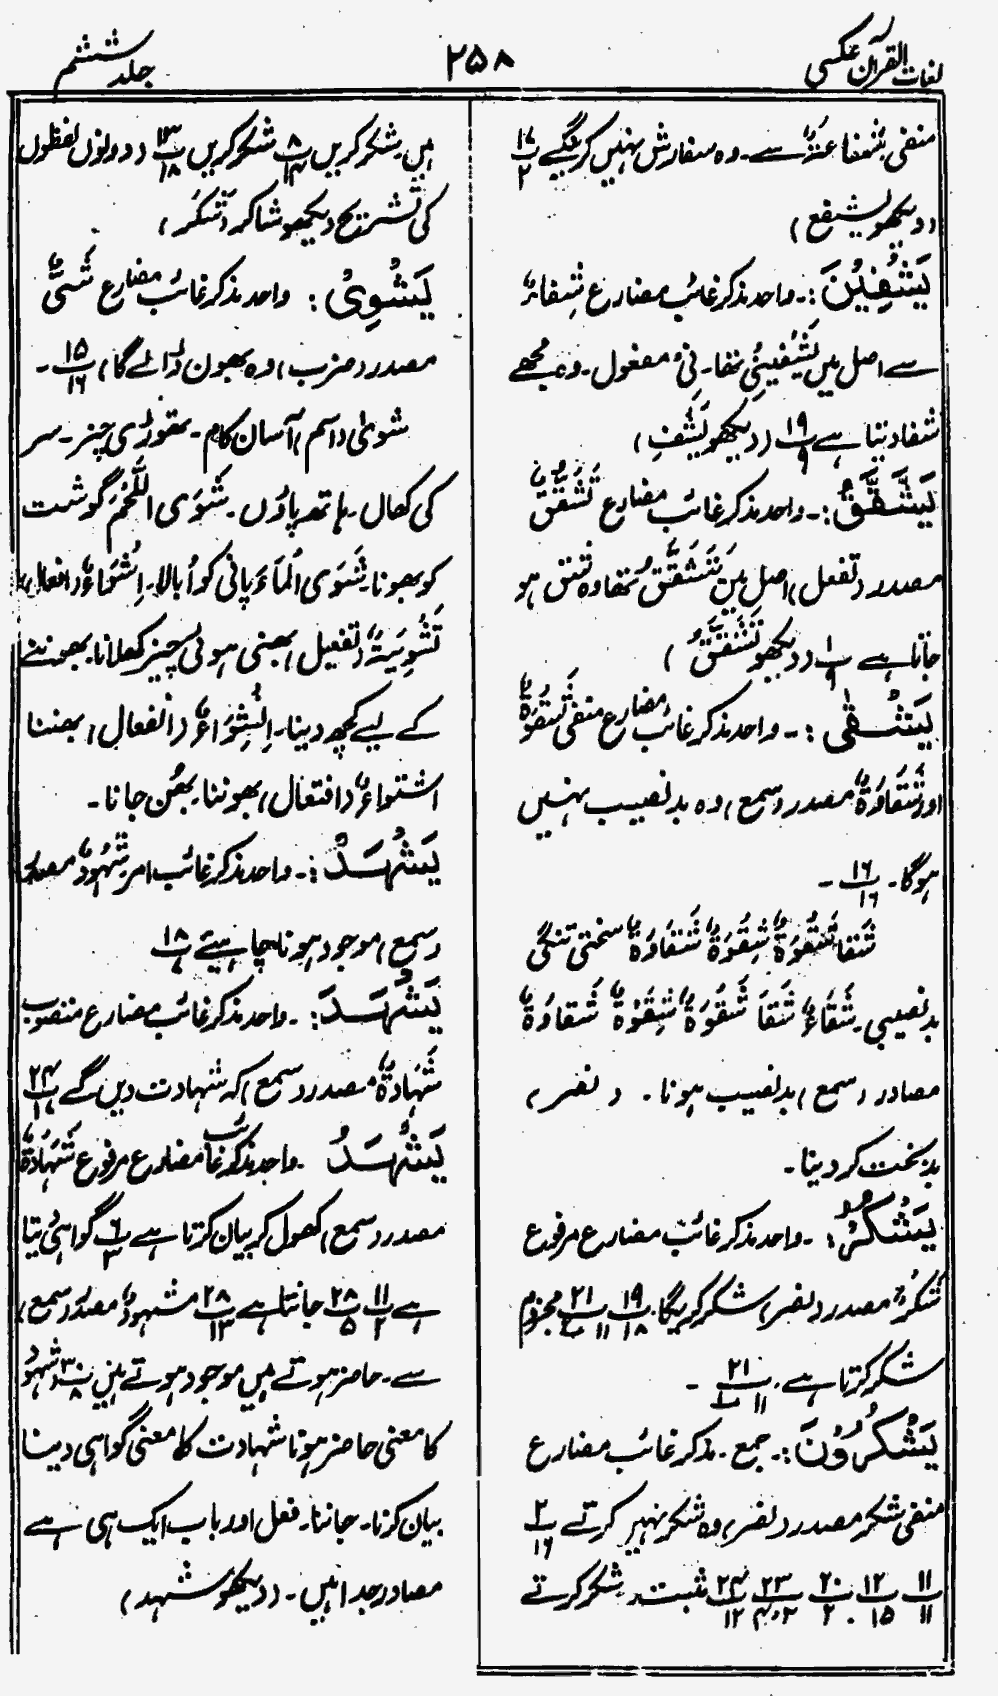 لغات القرآن عکسی
۲۵۸
جلد ششم
منفی شفاعۃٌ سے۔ وہ سفارش نہیں کرینگے پ ۱۷ / ۲
(دیکھو یشفع)
یَشْفِیْنَ:۔ واحد مذکر غائب مضارع شِفَاءٌ
سے اصل میں یَشْفِیْنِیْ تھا۔ نِیْ مفعول۔ وہ مجھے
شفا دیتا ہے پ ۱۹ / ۹ (دیکھو یَشْفِ)
یَشَّقَّقُ:۔ واحد مذکر غائب مضارع تَشَقُّقٌ
مصدر (تفعل) اصل میں یَتَشَقَّقُ تھا وہ شق ہو
جاتا ہے پ ۱ / ۹ (دیکھو تَشَقَّقُ)
یَشْقٰی:۔ واحد مذکر غائب مضارع منفی شَقْوَۃٌ
اور شَقَاوَۃٌ مصدر (سمع) وہ بدنصیب نہیں
ہوگا۔ پ ۱۶ / ۱۶ ۔
شَقَا شَقْوَۃٌ شِقْوَۃٌ شَقَاوَۃٌ سختی تنگی
بدنصیبی۔ شَقَاءٌ شَقَا شَقْوَۃٌ شِقْوَۃٌ شَقَاوَۃٌ
مصادر (سمع) بدنصیب ہونا۔ (نصر)
بدبخت کر دینا۔
یَشْکُرُ:۔ واحد مذکر غائب مضارع مرفوع
شُکْرٌ مصدر (نصر) شکر کریگا۔ پ ۱۹ / ۱۸ پ ۲۱ / ۱۱ مجزوم
شکر کرتا ہے۔ پ ۲۱ / ۱۱ ۔
یَشْکُرُوْنَ:۔ جمع۔ مذکر غائب مضارع
منفی شکر مصدر (نصر) وہ شکر نہیں کرتے پ ۲ / ۱۶
پ ۱۱ / ۱۱ پ ۱۲ / ۱۵ پ ۲۰ / ۲ پ ۲۳ / ۲،۴ پ ۲۴ / ۱۲ مثبت۔ شکر کرتے
ہیں۔ شکر کریں پ ۸ / ۱۴ شکر کریں پ ۱۳ / ۱۸ (دونوں لفظوں
کی تشریح دیکھو شاکر، تَشْکُر)
یَشْوِیْ: واحد مذکر غائب مضارع شَیٌّ
مصدر (ضرب) وہ بھون ڈالے گا، پ ۱۵ / ۱۶ ۔
شویٰ (اسم) آسان کام۔ تھوڑی چیز۔ سر
کی کھال۔ ہاتھ پاؤں۔ شَوَی اللَّحْمَ گوشت
کو بھونا۔ شَوَی الْمَاءَ پانی کو اُبالا۔ اِشْوَاءٌ (افعال)
تَشْوِیَۃٌ (تفعیل) بھنی ہوئی چیز کھلانا۔ بھوننے
کے لیے کچھ دینا۔ اِنْشِوَاءٌ (انفعال) بھننا
اشتواءٌ (افتعال) بھوننا۔ بھُن جانا۔
یَشْہَدْ:۔ واحد مذکر غائب امر شُہُوْدٌ مصدر
(سمع) موجود ہونا چاہیئے پ ۱۸ / ۷
یَشْہَدَ:۔ واحد مذکر غائب مضارع منصوب
شَہَادَۃٌ مصدر (سمع) کہ شہادت دیں گے پ ۲۴ / ۱۷
یَشْہَدُ۔ واحد مذکر غائب مضارع مرفوع شَہَادَۃٌ
مصدر (سمع) کھول کر بیان کرتا ہے پ ۶ / ۳ گواہی دیتا
ہے پ ۱۱ / ۲ پ ۲۸ / ۵ جانتا ہے پ ۲۸ / ۱۳ شہودٌ مصدر (سمع)
سے۔ حاضر ہوتے ہیں موجود ہوتے ہیں پ ۳۰ / ۸ شہود
کا معنی حاضر ہونا شہادت کا معنی گواہی دینا
بیان کرنا۔ جاننا۔ فعل اور باب ایک ہی ہے
مصادر جدا ہیں۔ (دیکھو شہد)